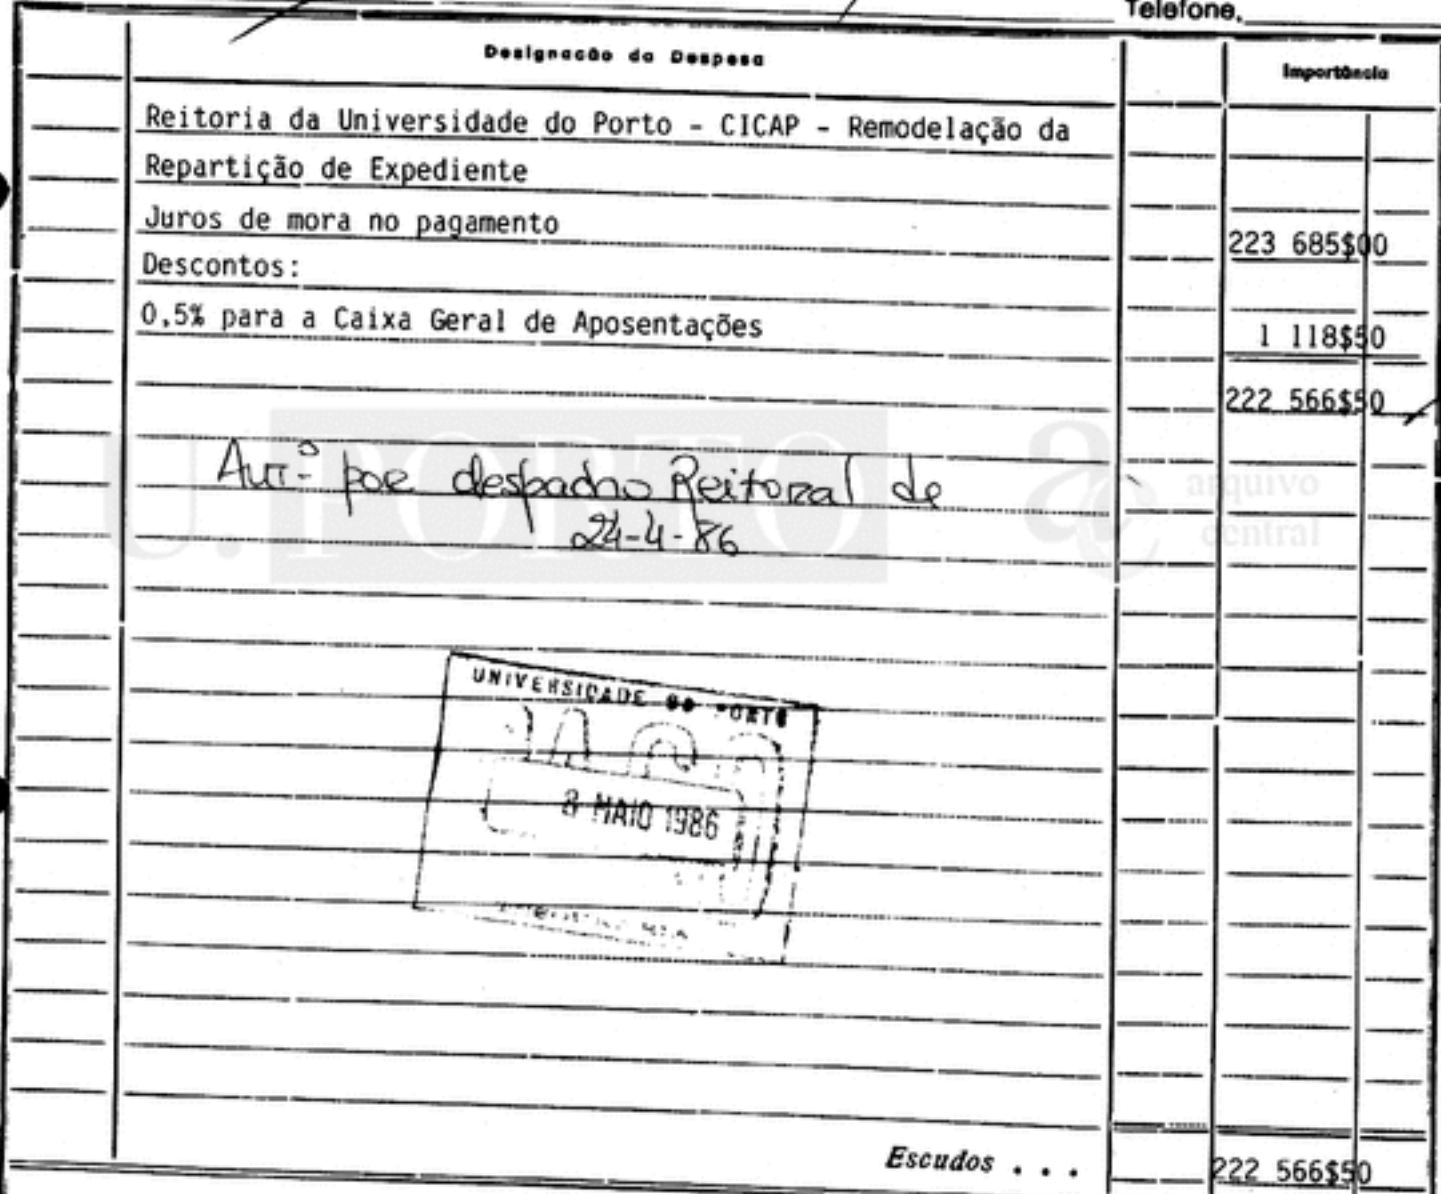 Telefone.
Designação da Despesa
Importância
Reitoria da Universidade do Porto - CICAP - Remodelação da
Repartição de Expediente
Juros de mora no pagamento 223 685$00
Descontos:
0,5% para a Caixa Geral de Aposentações 1 118$50
222 566$50
Aut.º por despacho Reitoral de
24-4-86
U. PORTO
ac arquivo
central
UNIVERSIDADE DO PORTO
PAGO
8 MAIO 1986
Escudos . . . 222 566$50